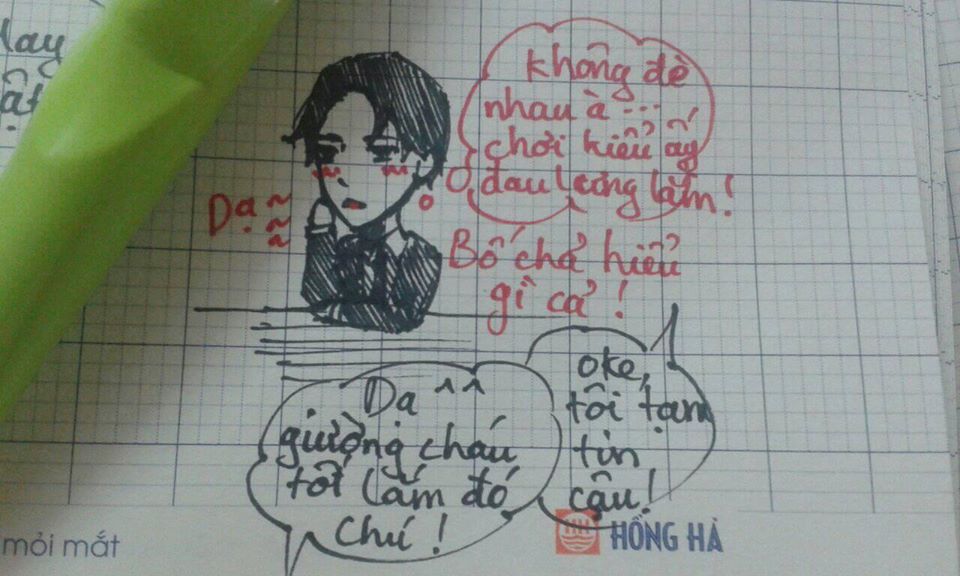 không đè
nhau à ...
chơi kiểu ấy
đau lưng lắm!
Dạ ~~~
Bố chả hiểu
gì cả!
oke,
tôi tạm
tin
cậu!
Dạ ^^
giường cháu
tốt lắm đó
chú!
mỏi mắt
HỒNG HÀ